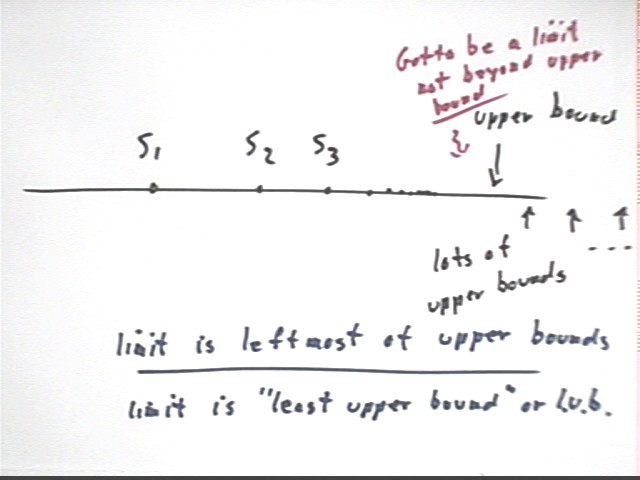 Gotta be a limit
not beyond upper
bound
upper bound
S1 S2 S3
lots of
upper bounds
limit is leftmost of upper bounds
limit is "least upper bound" or l.u.b.